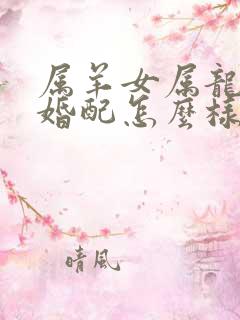 属羊女属龍
婚配怎麼樣
晴風